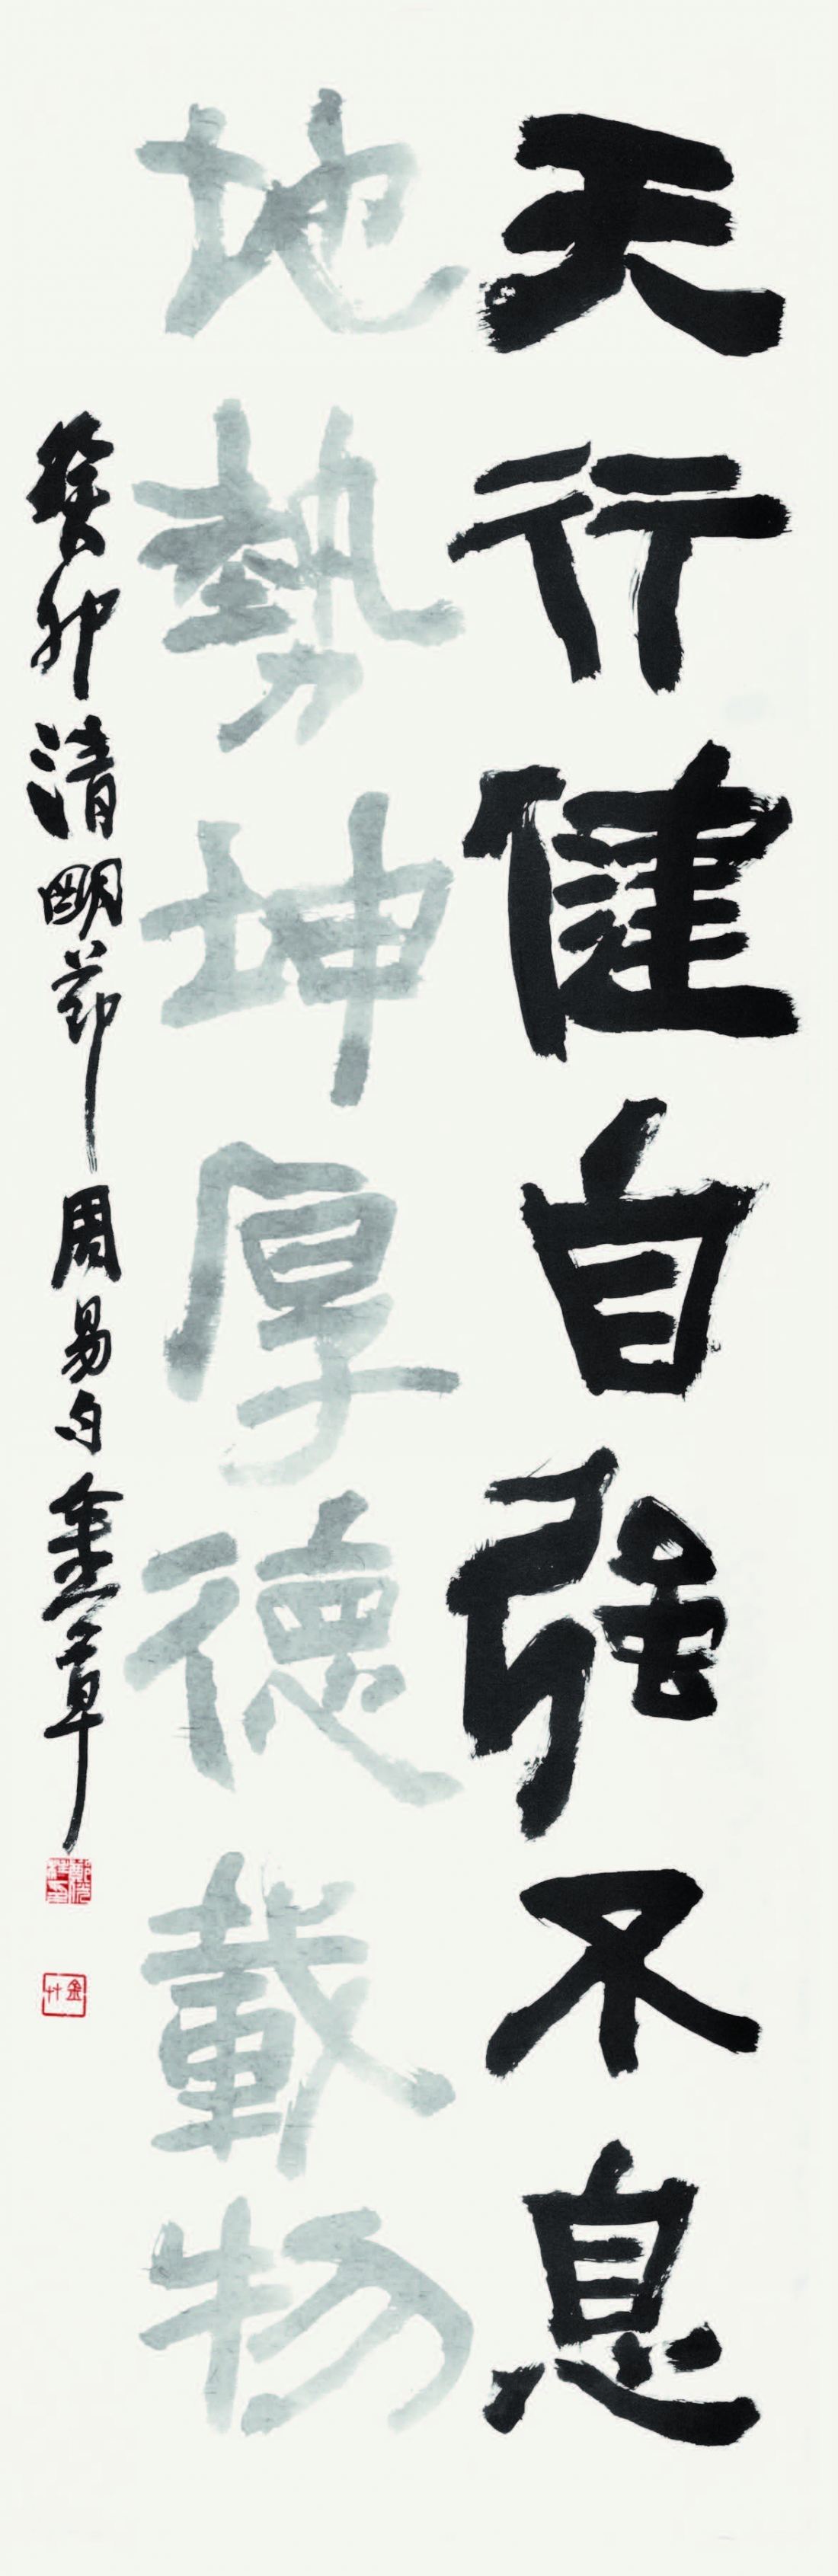 天行健自强不息
地勢坤厚德載物
癸卯清朙節周易句金草
金艸